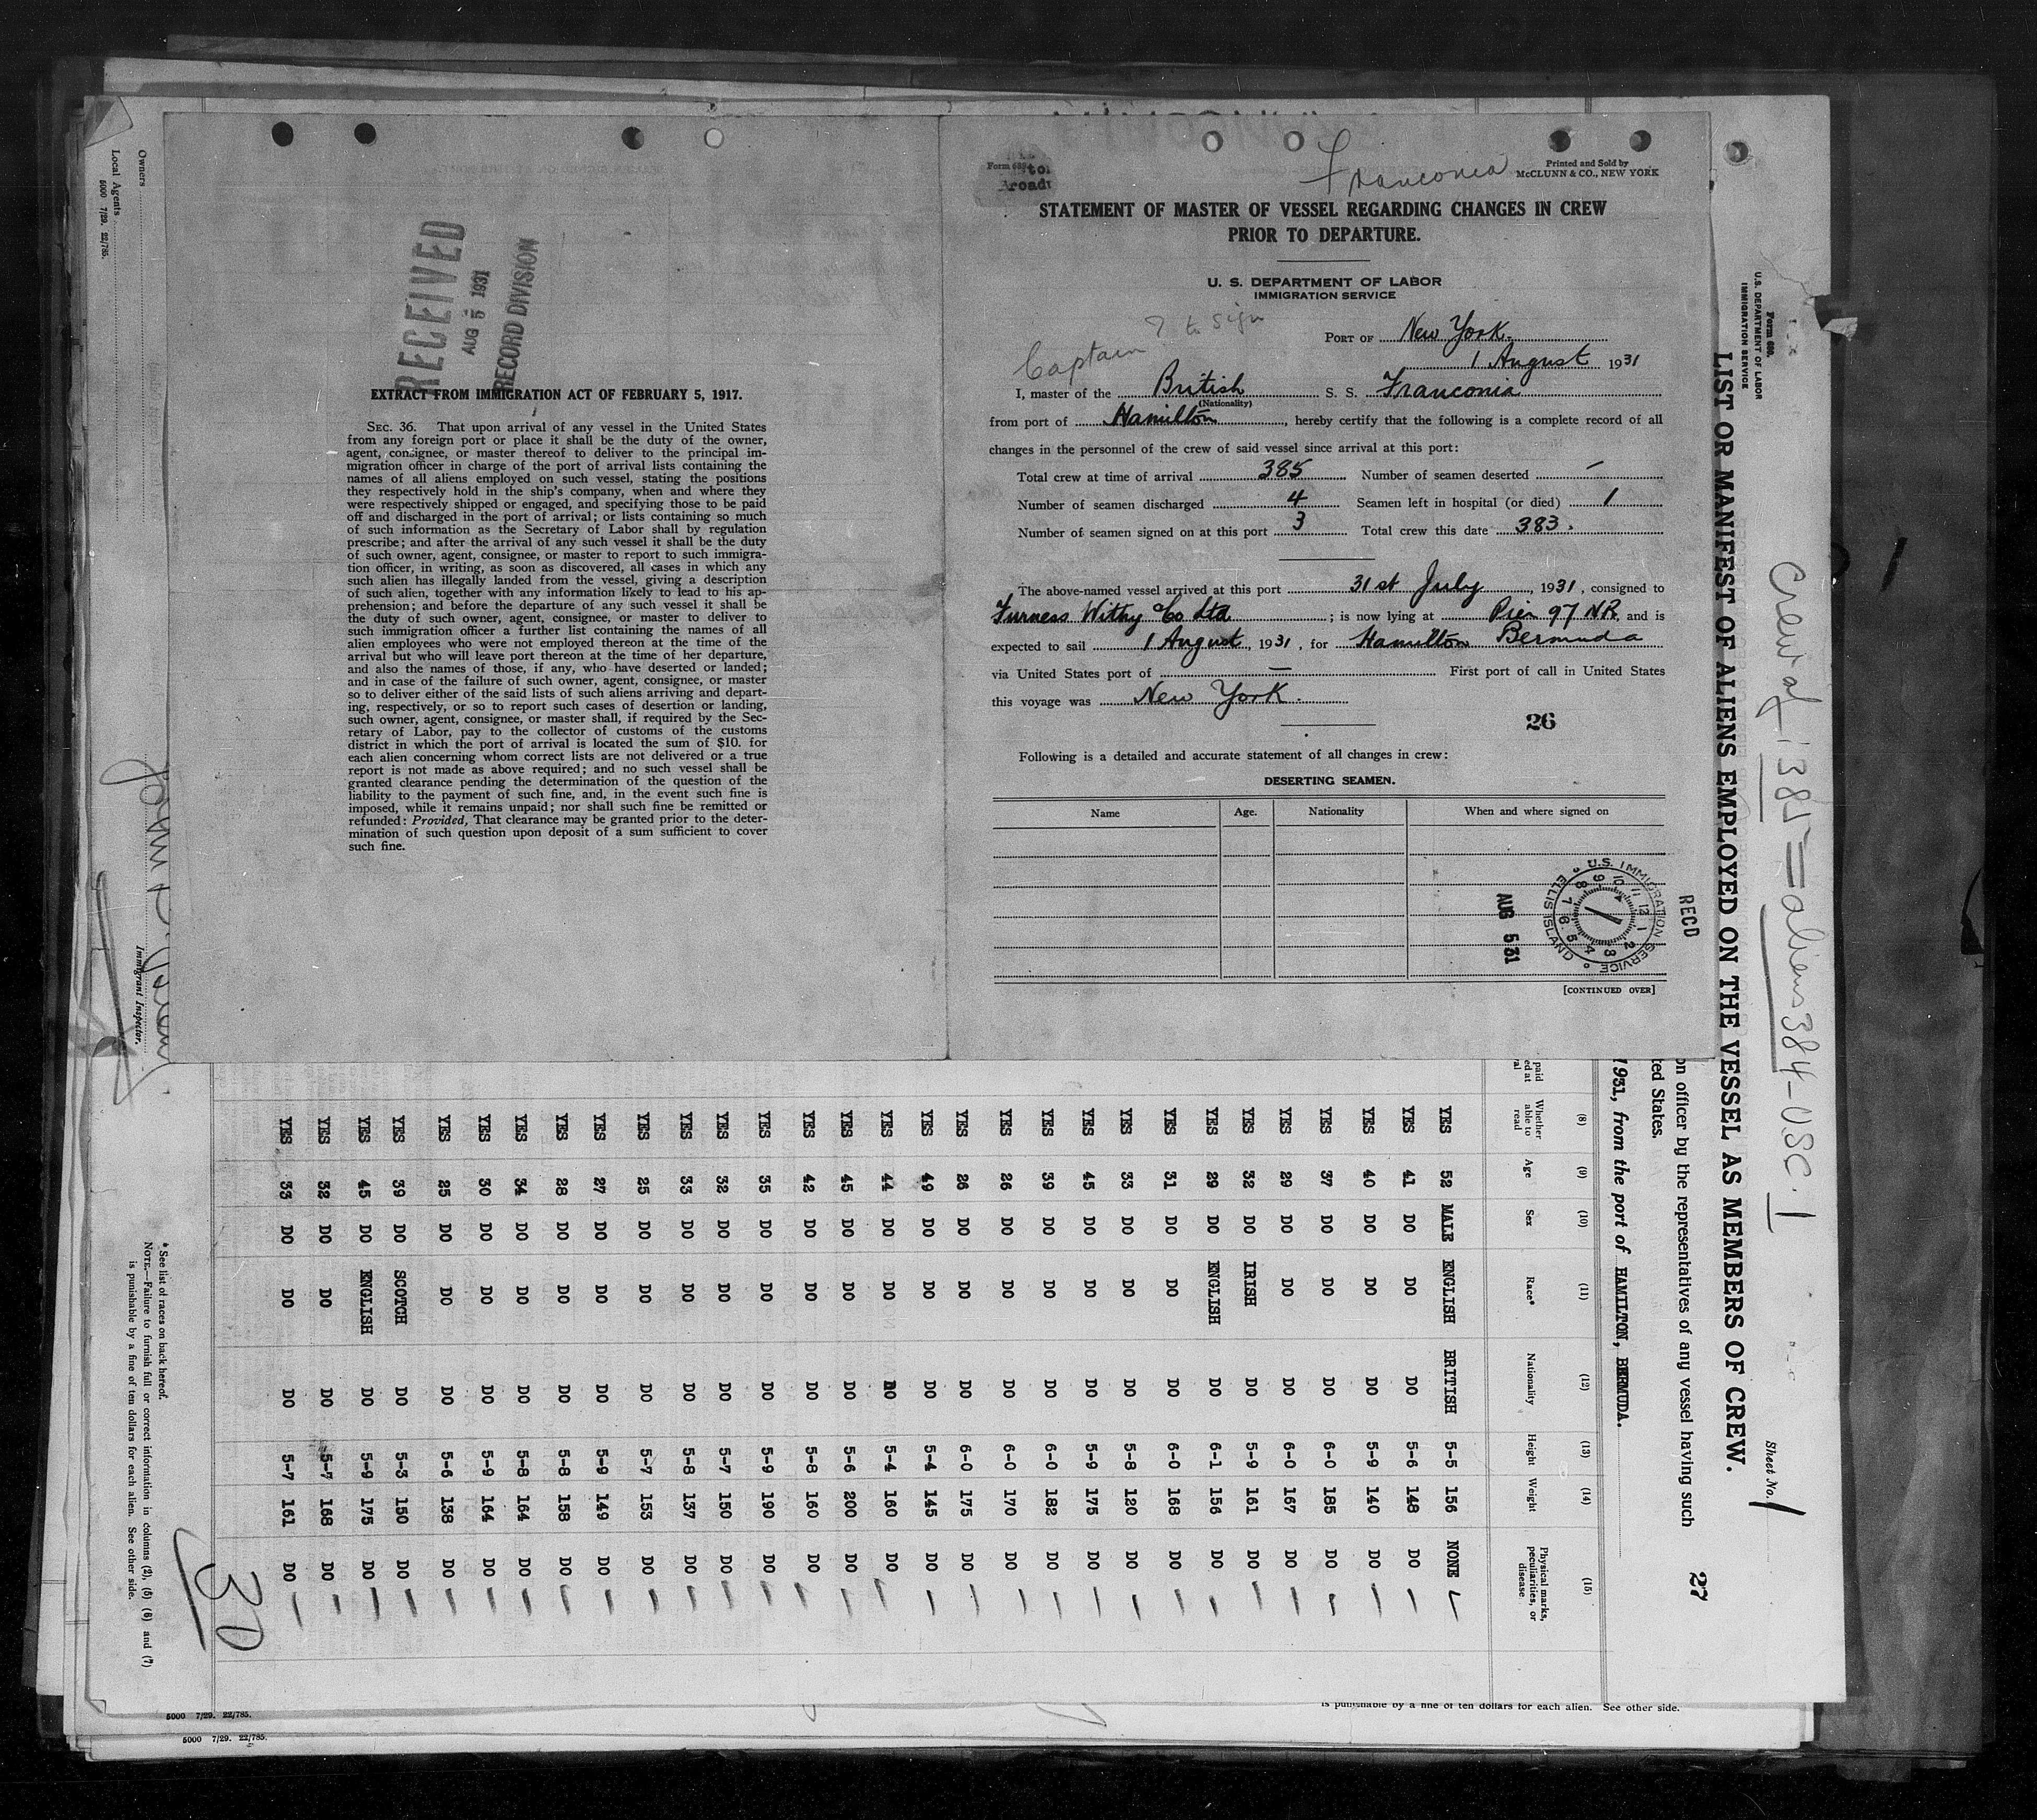 Owners
Local Agents
5000 7/29. 22/785.
Immigrant Inspector.
RECEIVED
AUG 5 1931
RECORD DIVISION
EXTRACT FROM IMMIGRATION ACT OF FEBRUARY 5, 1917.
SEC. 36. That upon arrival of any vessel in the United States
from any foreign port or place it shall be the duty of the owner,
agent, consignee, or master thereof to deliver to the principal im-
migration officer in charge of the port of arrival lists containing the
names of all aliens employed on such vessel, stating the positions
they respectively hold in the ship's company, when and where they
were respectively shipped or engaged, and specifying those to be paid
off and discharged in the port of arrival; or lists containing so much
of such information as the Secretary of Labor shall by regulation
prescribe; and after the arrival of any such vessel it shall be the duty
of such owner, agent, consignee, or master to report to such immigra-
tion officer, in writing, as soon as discovered, all cases in which any
such alien has illegally landed from the vessel, giving a description
of such alien, together with any information likely to lead to his ap-
prehension; and before the departure of any such vessel it shall be
the duty of such owner, agent, consignee, or master to deliver to
such immigration officer a further list containing the names of all
alien employees who were not employed thereon at the time of the
arrival but who will leave port thereon at the time of her departure,
and also the names of those, if any, who have deserted or landed;
and in case of the failure of such owner, agent, consignee, or master
so to deliver either of the said lists of such aliens arriving and depart-
ing, respectively, or so to report such cases of desertion or landing,
such owner, agent, consignee, or master shall, if required by the Sec-
retary of Labor, pay to the collector of customs of the customs
district in which the port of arrival is located the sum of $10. for
each alien concerning whom correct lists are not delivered or a true
report is not made as above required; and no such vessel shall be
granted clearance pending the determination of the question of the
liability to the payment of such fine, and, in the event such fine is
imposed, while it remains unpaid; nor shall such fine be remitted or
refunded: Provided, That clearance may be granted prior to the deter-
mination of such question upon deposit of a sum sufficient to cover
such fine.
Form 689
Franconia
Printed and Sold by
McCLUNN & CO., NEW YORK
STATEMENT OF MASTER OF VESSEL REGARDING CHANGES IN CREW
PRIOR TO DEPARTURE.
U. S. DEPARTMENT OF LABOR
IMMIGRATION SERVICE
Captain ? to sign
PORT OF New York.
1 August 1931
I, master of the British S. S. Franconia
(Nationality)
from port of Hamilton, hereby certify that the following is a complete record of all
changes in the personnel of the crew of said vessel since arrival at this port:
Total crew at time of arrival 385 Number of seamen deserted —
Number of seamen discharged 4 Seamen left in hospital (or died) 1
Number of seamen signed on at this port 3 Total crew this date 383.
The above-named vessel arrived at this port 31st July, 1931, consigned to
Furness Withy & Co Ltd; is now lying at Pier 97 NR, and is
expected to sail 1 August, 1931, for Hamilton Bermuda
via United States port of — First port of call in United States
this voyage was New York.
26
Following is a detailed and accurate statement of all changes in crew:
DESERTING SEAMEN.
Name Age. Nationality When and where signed on
U.S. IMMIGRATION SERVICE ELLIS ISLAND
RECD
AUG 5 31
[CONTINUED OVER]
Form 680.
U. S. DEPARTMENT OF LABOR
IMMIGRATION SERVICE
Crew of 385 = aliens 384 - USC. 1
Sheet No. 1
LIST OR MANIFEST OF ALIENS EMPLOYED ON THE VESSEL AS MEMBERS OF CREW.
27
on officer by the representatives of any vessel having such
ted States.
1931, from the port of HAMILTON, BERMUDA.
(8) (9) (10) (11) (12) (13) (14) (15)
Whether able to read Age Sex Race* Nationality Height Weight Physical marks, peculiarities, or disease
YES 52 MALE ENGLISH BRITISH 5-5 156 NONE
YES 41 DO DO DO 5-6 148 DO
YES 40 DO DO DO 5-9 140 DO
YES 37 DO DO DO 6-0 185 DO
YES 29 DO DO DO 6-0 167 DO
YES 32 DO IRISH DO 5-9 161 DO
YES 29 DO ENGLISH DO 6-1 156 DO
YES 31 DO DO DO 6-0 168 DO
YES 33 DO DO DO 5-8 120 DO
YES 45 DO DO DO 5-9 175 DO
YES 39 DO DO DO 6-0 182 DO
YES 26 DO DO DO 6-0 170 DO
YES 26 DO DO DO 6-0 175 DO
YES 49 DO DO DO 5-4 145 DO
YES 44 DO DO DO 5-4 160 DO
YES 45 DO DO DO 5-6 200 DO
YES 42 DO DO DO 5-8 160 DO
YES 35 DO DO DO 5-9 190 DO
YES 32 DO DO DO 5-7 150 DO
YES 33 DO DO DO 5-8 137 DO
YES 25 DO DO DO 5-7 153 DO
YES 27 DO DO DO 5-9 149 DO
YES 28 DO DO DO 5-8 158 DO
YES 34 DO DO DO 5-8 164 DO
YES 30 DO DO DO 5-9 164 DO
YES 25 DO DO DO 5-6 138 DO
YES 39 DO SCOTCH DO 5-3 150 DO
YES 45 DO ENGLISH DO 5-9 175 DO
YES 32 DO DO DO 5-7 168 DO
YES 33 DO DO DO 5-7 161 DO
30
* See list of races on back hereof.
NOTE.—Failure to furnish full or correct information in columns (2), (5) (6) and (7)
is punishable by a fine of ten dollars for each alien. See other side.
is punishable by a fine of ten dollars for each alien. See other side.
5000 7/29. 22/785.
5000 7/29. 22/785.